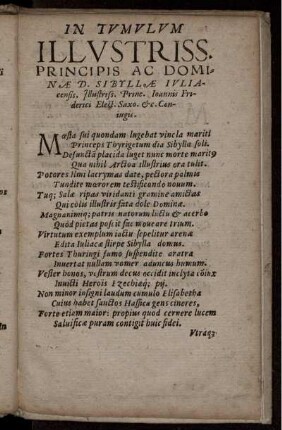 IN TVMVLVM
ILLVSTRISS.
PRINCIPIS AC DOMI-
NÆ D. SIBYLLÆ IVLIA-
censis, Illustriss. Princ. Ioannis Fri-
derici Elect. Saxo. &c. Con-
iugis.
Mœsta sui quondam lugebat vincla mariti
Princeps Thyrigetum dia Sibylla soli.
Defunctā placida luget nunc morte maritꝰ
Qua nihil Arctoa illustrius ora tulit.
Potores limi lacrymas date, pectora palmis
Tundite mœrorem testificando nouum.
Tuq; Sala ripas viridanti gramine amictas
Qui colis illustrir fata dole Dominæ.
Magnanimiq; patris natorum luctu & acerbo
Quod pietas posuit fac moueare irum.
Virtutum exemplum iacta sepelitur arena
Edita Iuliaca stirpe Sibylla domus.
Fortes Thuringi fumo suspendite aratra
Inuertat nullam vomer aduncus humum.
Vester bonos, vestrum decus occidit inclyta cōiux
Inuicti Herois Ezechiæq; pij.
Non minor insigni laudum cumulo Elisabetha
Cuius habet sanctos Hassica gens cineres,
Porto etiam maior: propius quod cernere lucem
Saluificæ puram contigit huic fidei.
Vtraqꝫ